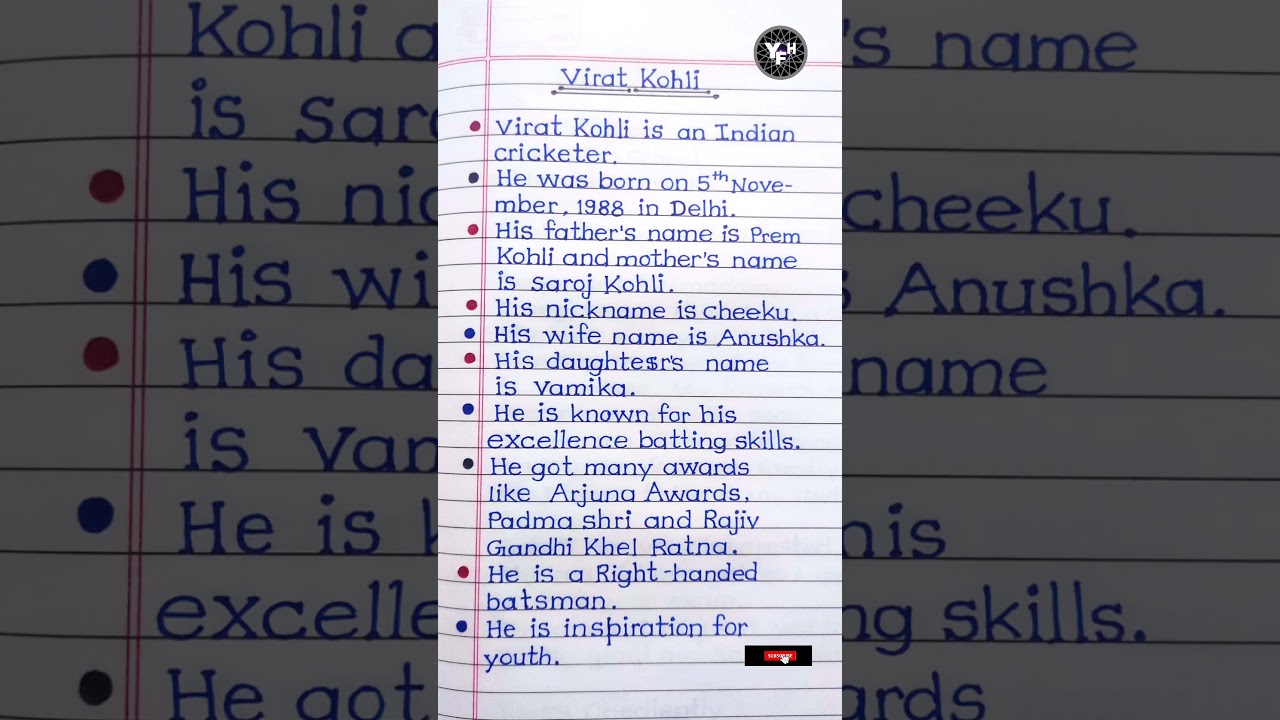 Virat Kohli
Virat Kohli is an Indian
cricketer.
He was born on 5th Nove-
mber, 1988 in Delhi.
His father's name is Prem
Kohli and mother's name
is saroj Kohli.
His nickname is cheeku.
His wife name is Anushka.
His daughtesr's name
is vamika.
He is known for his
excellence batting skills.
He got many awards
like Arjuna Awards,
Padma shri and Rajiv
Gandhi Khel Ratna.
He is a Right-handed
batsman.
He is inspiration for
youth.
YFH
SUBSCRIBE
Kohli a
's name
is saro
His nic
cheeku.
His wi
s Anushka.
His da
name
is van
He is k
his
excelle
ng skills.
He got
ards